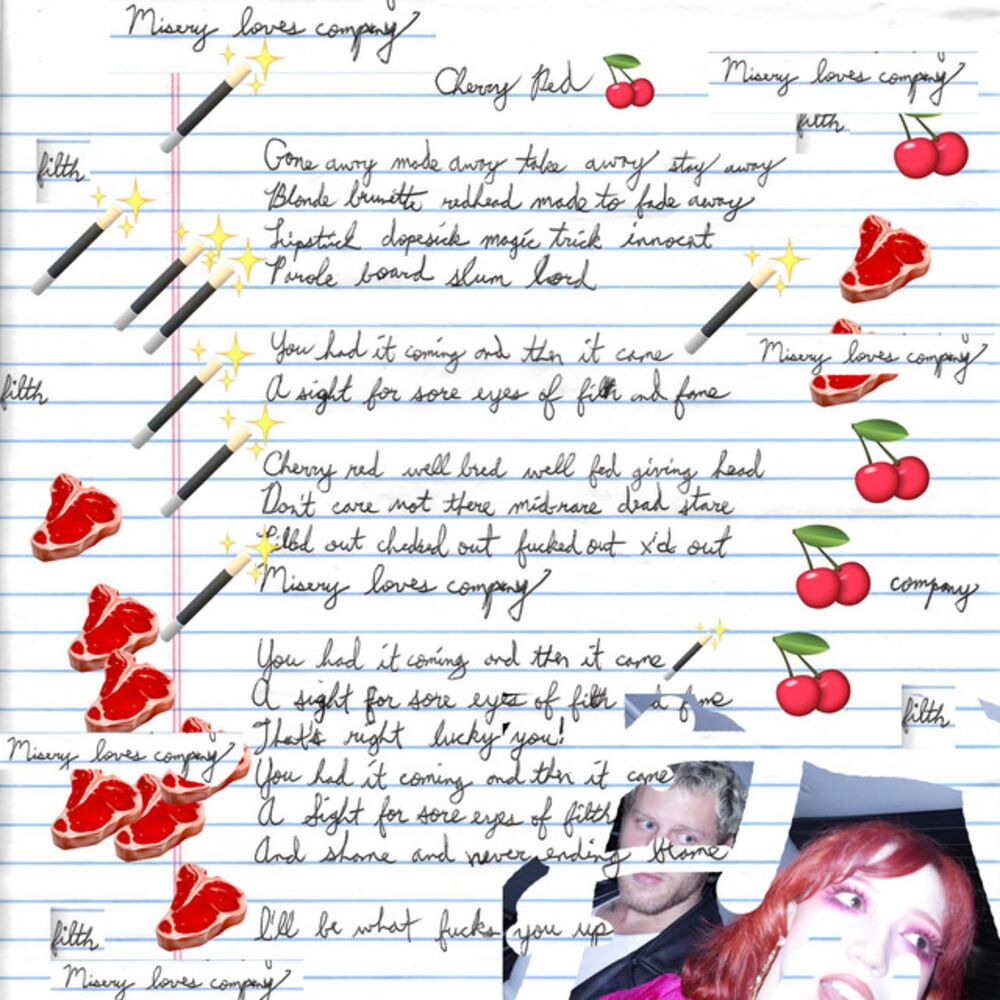 Misery loves company
Cherry Red
Misery loves company
filth
filth
Gone awry made away take away stay away
Blonde brunette redhead made to fade away
Lipstick dopesick magic trick innocent
Parole board slum lord
You had it coming and then it came
Misery loves company
A sight for sore eyes of filth and fame
filth
Cherry red well bred well fed giving head
Don't care not there mid-rare dead stare
out checked out fucked out x'd out
Misery loves company
company
You had it coming and then it came
A sight for sore eyes of filth
filth
That's right lucky you!
Misery loves company
You had it coming and then it came
A sight for sore eyes of filth
And shame and never ending blame
I'll be what fucks you up
filth
Misery loves company